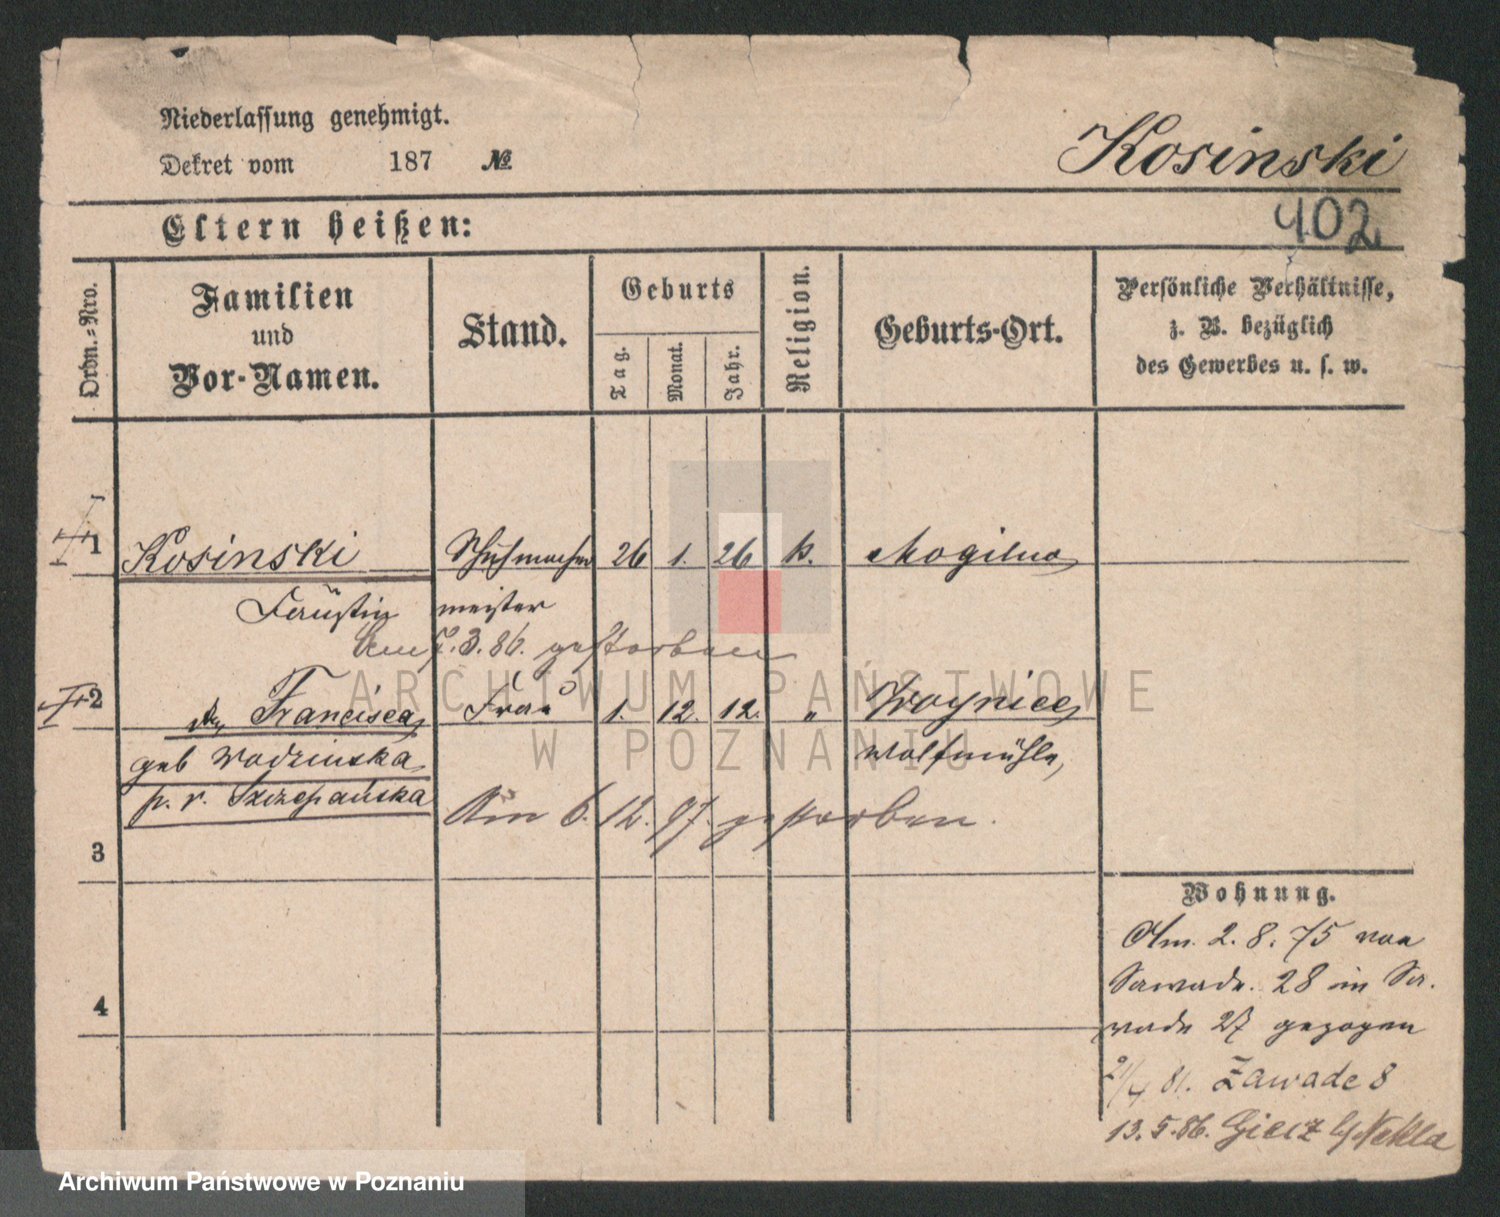 Niederlassung genehmigt.
Dekret vom 187 №
Kosinski
Eltern heißen:
402
Ordn.-Nro.
Familien
und
Vor-Namen.
Stand.
Geburts
Tag.
Monat.
Jahr.
Religion.
Geburts-Ort.
Persönliche Verhältnisse,
z. B. bezüglich
des Gewerbes u. s. w.
1 Kosinski Schuhmacher 26 1. 26 k. Mogilno
Faustin meister
Am 7.3.86. gestorben
ARCHIWUM PAŃSTWOWE
W POZNANIU
2 Francisca Frau 1. 12. 12. "
geb Wodzinska Wolfmühle,
Szczepańska
Am 6. 12. 97. gestorben.
3
Wohnung.
Am. 2. 8. 75 von
Sawade. 28 in Sa.
wade 27 gezogen
4
81. Zawade 8
13.5.86. Giecz Nekla
Archiwum Państwowe w Poznaniu